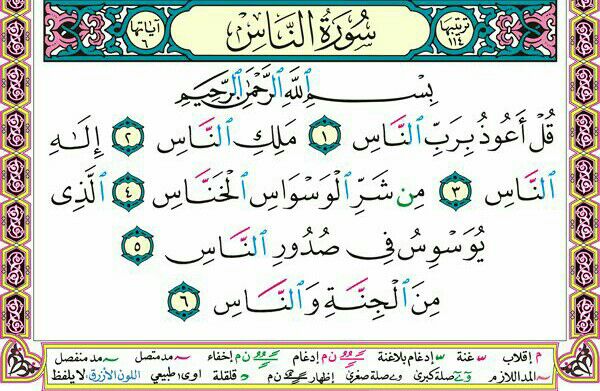 ترتيبها ١١٤ سُورَةُ النَّاسِ آياتها ٦
بِسْمِ اللَّهِ الرَّحْمَٰنِ الرَّحِيمِ
قُلْ أَعُوذُ بِرَبِّ النَّاسِ ١ مَلِكِ النَّاسِ ٢ إِلَٰهِ
النَّاسِ ٣ مِن شَرِّ الْوَسْوَاسِ الْخَنَّاسِ ٤ الَّذِي
يُوَسْوِسُ فِي صُدُورِ النَّاسِ ٥
مِنَ الْجِنَّةِ وَالنَّاسِ ٦
م إقلاب غنة إدغام بلاغنة ن م إدغام ن م إخفاء مد متصل مد منفصل
المد اللازم صلة كبرى صلة صغرى إظهار ن م قلقلة اوى: طبيعي اللون الأزرق: لا يلفظ